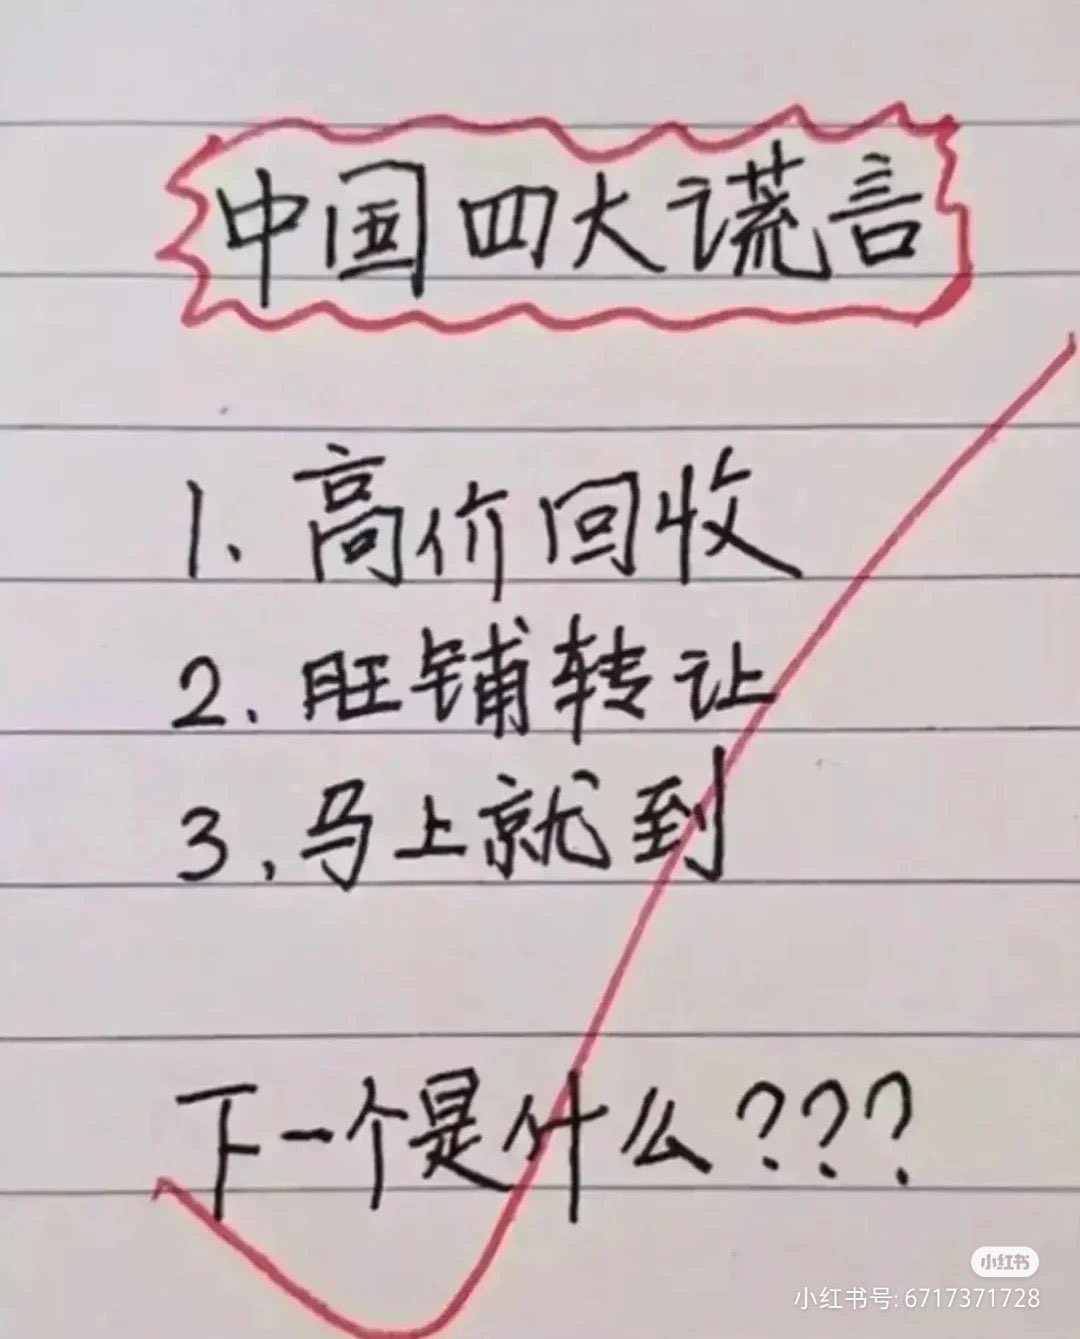 中国四大谎言
1、高价回收
2.旺铺转让
3.马上就到
下一个是什么???
小红书
小红书号: 6717371728